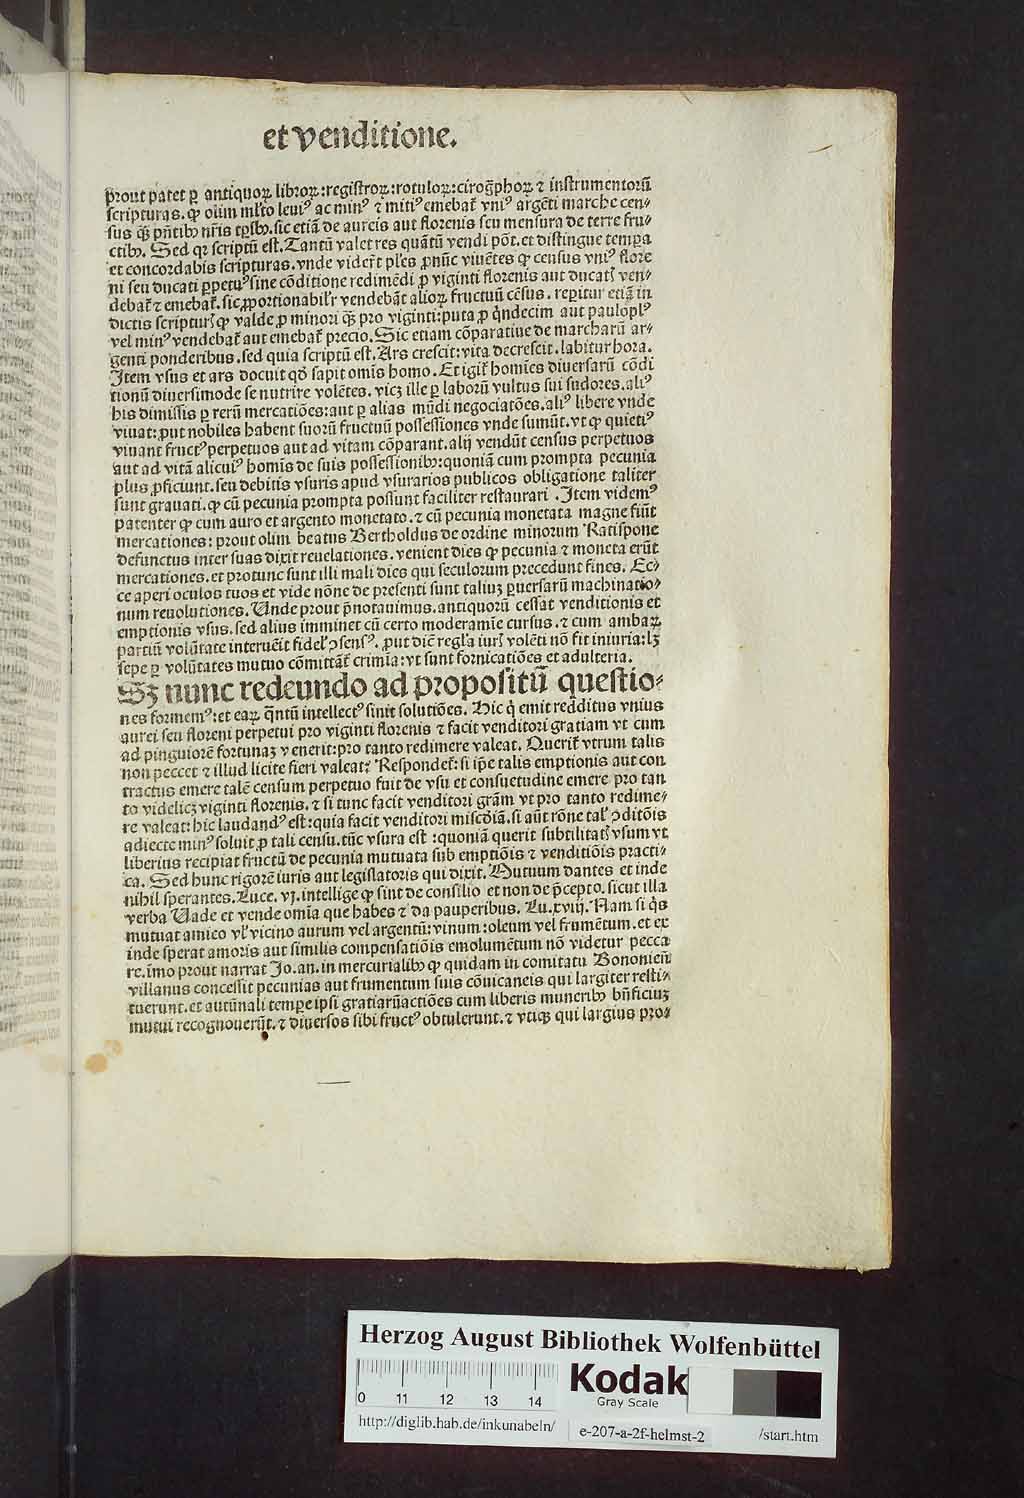 et venditione.
prout patet ꝑ antiquoꝝ libroꝝ:registroꝝ:rotuloꝝ:cirog̃phoꝝ ⁊ instrumentorū
scripturas. ꝙ olim ml̓to leuiꝰ ac minꝰ ⁊ mitiꝰ emebat̃ vniꝰ argēti marche cen⸗
sus q̄ꝫ p̄ntibꝫ nr̄is tꝑibꝫ. sic etiā de aureis aut florenis seu mensura de terre fru⸗
ctibꝫ. Sed qꝛ scriptū est. Tantū valet res quātū vendi pōt. et distingue tempꝑa
et concordabis scripturas. vnde vider̄t ples ꝓnūc viuētes ꝙ census vniꝰ flore
ni seu ducati ꝑpetuꝰ sine cōditione redimēdi ꝓ viginti florenis aut ducat̓ ven⸗
debat̃ ⁊ emebat̃. sic ꝓportionabilr̓ vendebāt alioꝝ fructuū cēsus. reꝑitur etiā in
dictis scriptur̓ ꝙ valde ꝓ minori q̄ꝫ pro viginti:puta ꝓ q̇ndecim aut paulopl̓ꝰ
vel minꝰ vendebat̃ aut emebat̃ precio. Sic etiam cōparatiue de marcharū ar⸗
genti ponderibus. sed quia scriptū est. Ars crescit:vita decrescit. labitur hora.
Item vsus et ars docuit qd̓ sapit omīs homo. Et igit̃ homīes diuersarū cōdi
tionū diuersimode se nutrire volētes. vicꝫ ille ꝑ laborū vultus sui sudores. aliꝰ
his dimissis ꝑ rerū mercatiōes:aut ꝑ alias mūdi negociatōes. aliꝰ libere vnde
viuat:ꝓut nobiles habent suorū fructuū possessiones vnde sumūt. vt ꝙ quietiꝰ
viuant fructꝰ perpetuos aut ad vitam cōparant. alij vendūt census perpetuos
aut ad vitā alicuiꝰ homīs de suis possessionibꝫ:quoniā cum prompta pecunia
plus ꝓficiunt. seu debitis vsuris apud vsurarios publicos obligatione taliter
sunt grauati. ꝙ cū pecunia prompta possunt faciliter restaurari. Item videmꝰ
patenter ꝙ cum auro et argento monetato. ⁊ cū pecunia monetata magne fiūt
mercationes: prout olim beatus Bertholdus de ordine minorum Ratispone
defunctus inter suas dixit reuelationes. venient dies ꝙ pecunia ⁊ moneta erūt
mercationes. et protunc sunt illi mali dies qui seculorum precedunt fines. Ec⸗
ce aperi oculos tuos et vide nōne de presenti sunt taliuꝫ ꝑuersarū machinatio⸗
num reuolutiones. Unde prout p̄notauimus. antiquorū cessat venditionis et
emptionis vsus. sed alius imminet cū certo moderamīe cursus. ⁊ cum ambaꝝ
partiū volūtate interuēit fidel̓ ↄ̄sensꝰ. ꝓut dic̄ regl̓a iur̓ volēti nō fit iniuria: lꝫ
sepe ꝑ volūtates mutuo cōmittāt̃ crimīa: vt sunt fornicatiōes et adulteria.
Sꝫ nunc redeundo ad propositū questio⸗
nes formemꝰ:et eaꝝ q̄ntū intellectꝰ sinit solutiōes. Hic q̇ emit redditus vnius
aurei seu floreni perpetui pro viginti florenis ⁊ facit venditori gratiam vt cum
ad pinguiorē fortunaꝫ venerit:pro tanto redimere valeat. Querit̃ vtrum talis
non peccet ⁊ illud licite fieri valeat? Respondet̃: si ip̄e talis emptionis aut con
tractus emere talē censum perpetuo fuit de vsu et consuetudine emere pro tan
to videlicꝫ viginti florenis. ⁊ si tunc facit venditori grām vt pro tanto redime⸗
re valeat: hic laudandꝰ est: quia facit venditori misc̄diā. si aūt rōne tal̓ ↄ̄ditōis
adiecte minꝰ soluit ꝓ tali censu. tūc vsura est :quoniā querit subtilitat̓ vsum vt
liberius recipiat fructū de pecunia mutuata sub emptiōis ⁊ venditiōis practi⸗
ca. Sed hunc rigorē iuris aut legislatoris qui dixit. Mutuum dantes et inde
nihil sperantes. Luce. vj. intellige ꝙ sint de consilio et non de p̄cepto. sicut illa
verba Uade et vende omīa que habes ⁊ da pauperibus. Lu. xviij. Nam si q̇s
mutuat amico vl̓ vicino aurum vel argentū: vinum: oleum vel frumētum. et ex
inde sperat amoris aut similis compensatiōis emolumētum nō videtur pecca
re. īmo prout narrat Jo. an. in mercurialibꝫ ꝙ quidam in comitatu Bononieñ
villanus concessit pecunias aut frumentum suis cōuicaneis qui largiter resti⸗
tuerunt. et autūnali tempꝑe ipsi gratiarū actiōes cum liberis muneribꝫ bn̄ficiuꝫ
mutui recognouerūt. ⁊ diuersos sibi fructꝰ obtulerunt. ⁊ vtiqꝫ qui largius pro⸗
Herzog August Bibliothek Wolfenbüttel
Kodak
Gray Scale
0 11 12 13 14
http://diglib.hab.de/inkunabeln/ e-207-a-2f-helmst-2 /start.htm